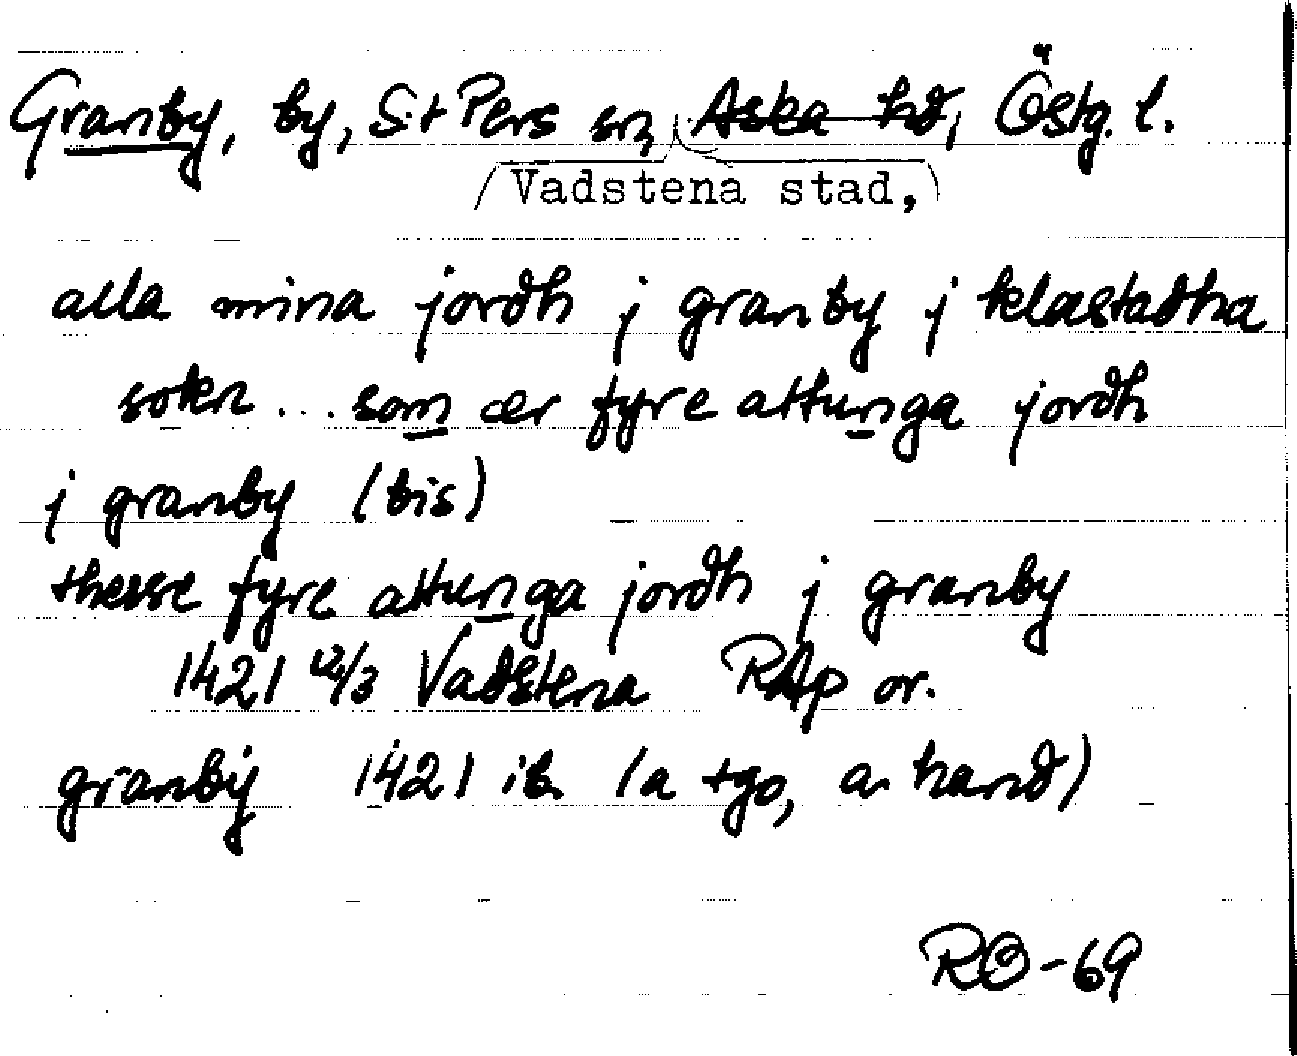 Granby, by, S:t Pers sn, Aska hd, Östg. l.
Vadstena stad,
alla mina jordh j granby j klastadha
sokn ... som ær fyre attunga jordh
j granby (bis)
thesse fyre attunga jordh j granby
1421 12/3 Vadstena RAp or.
granby 1421 ib. (a tgo, a. hand)
RB-69